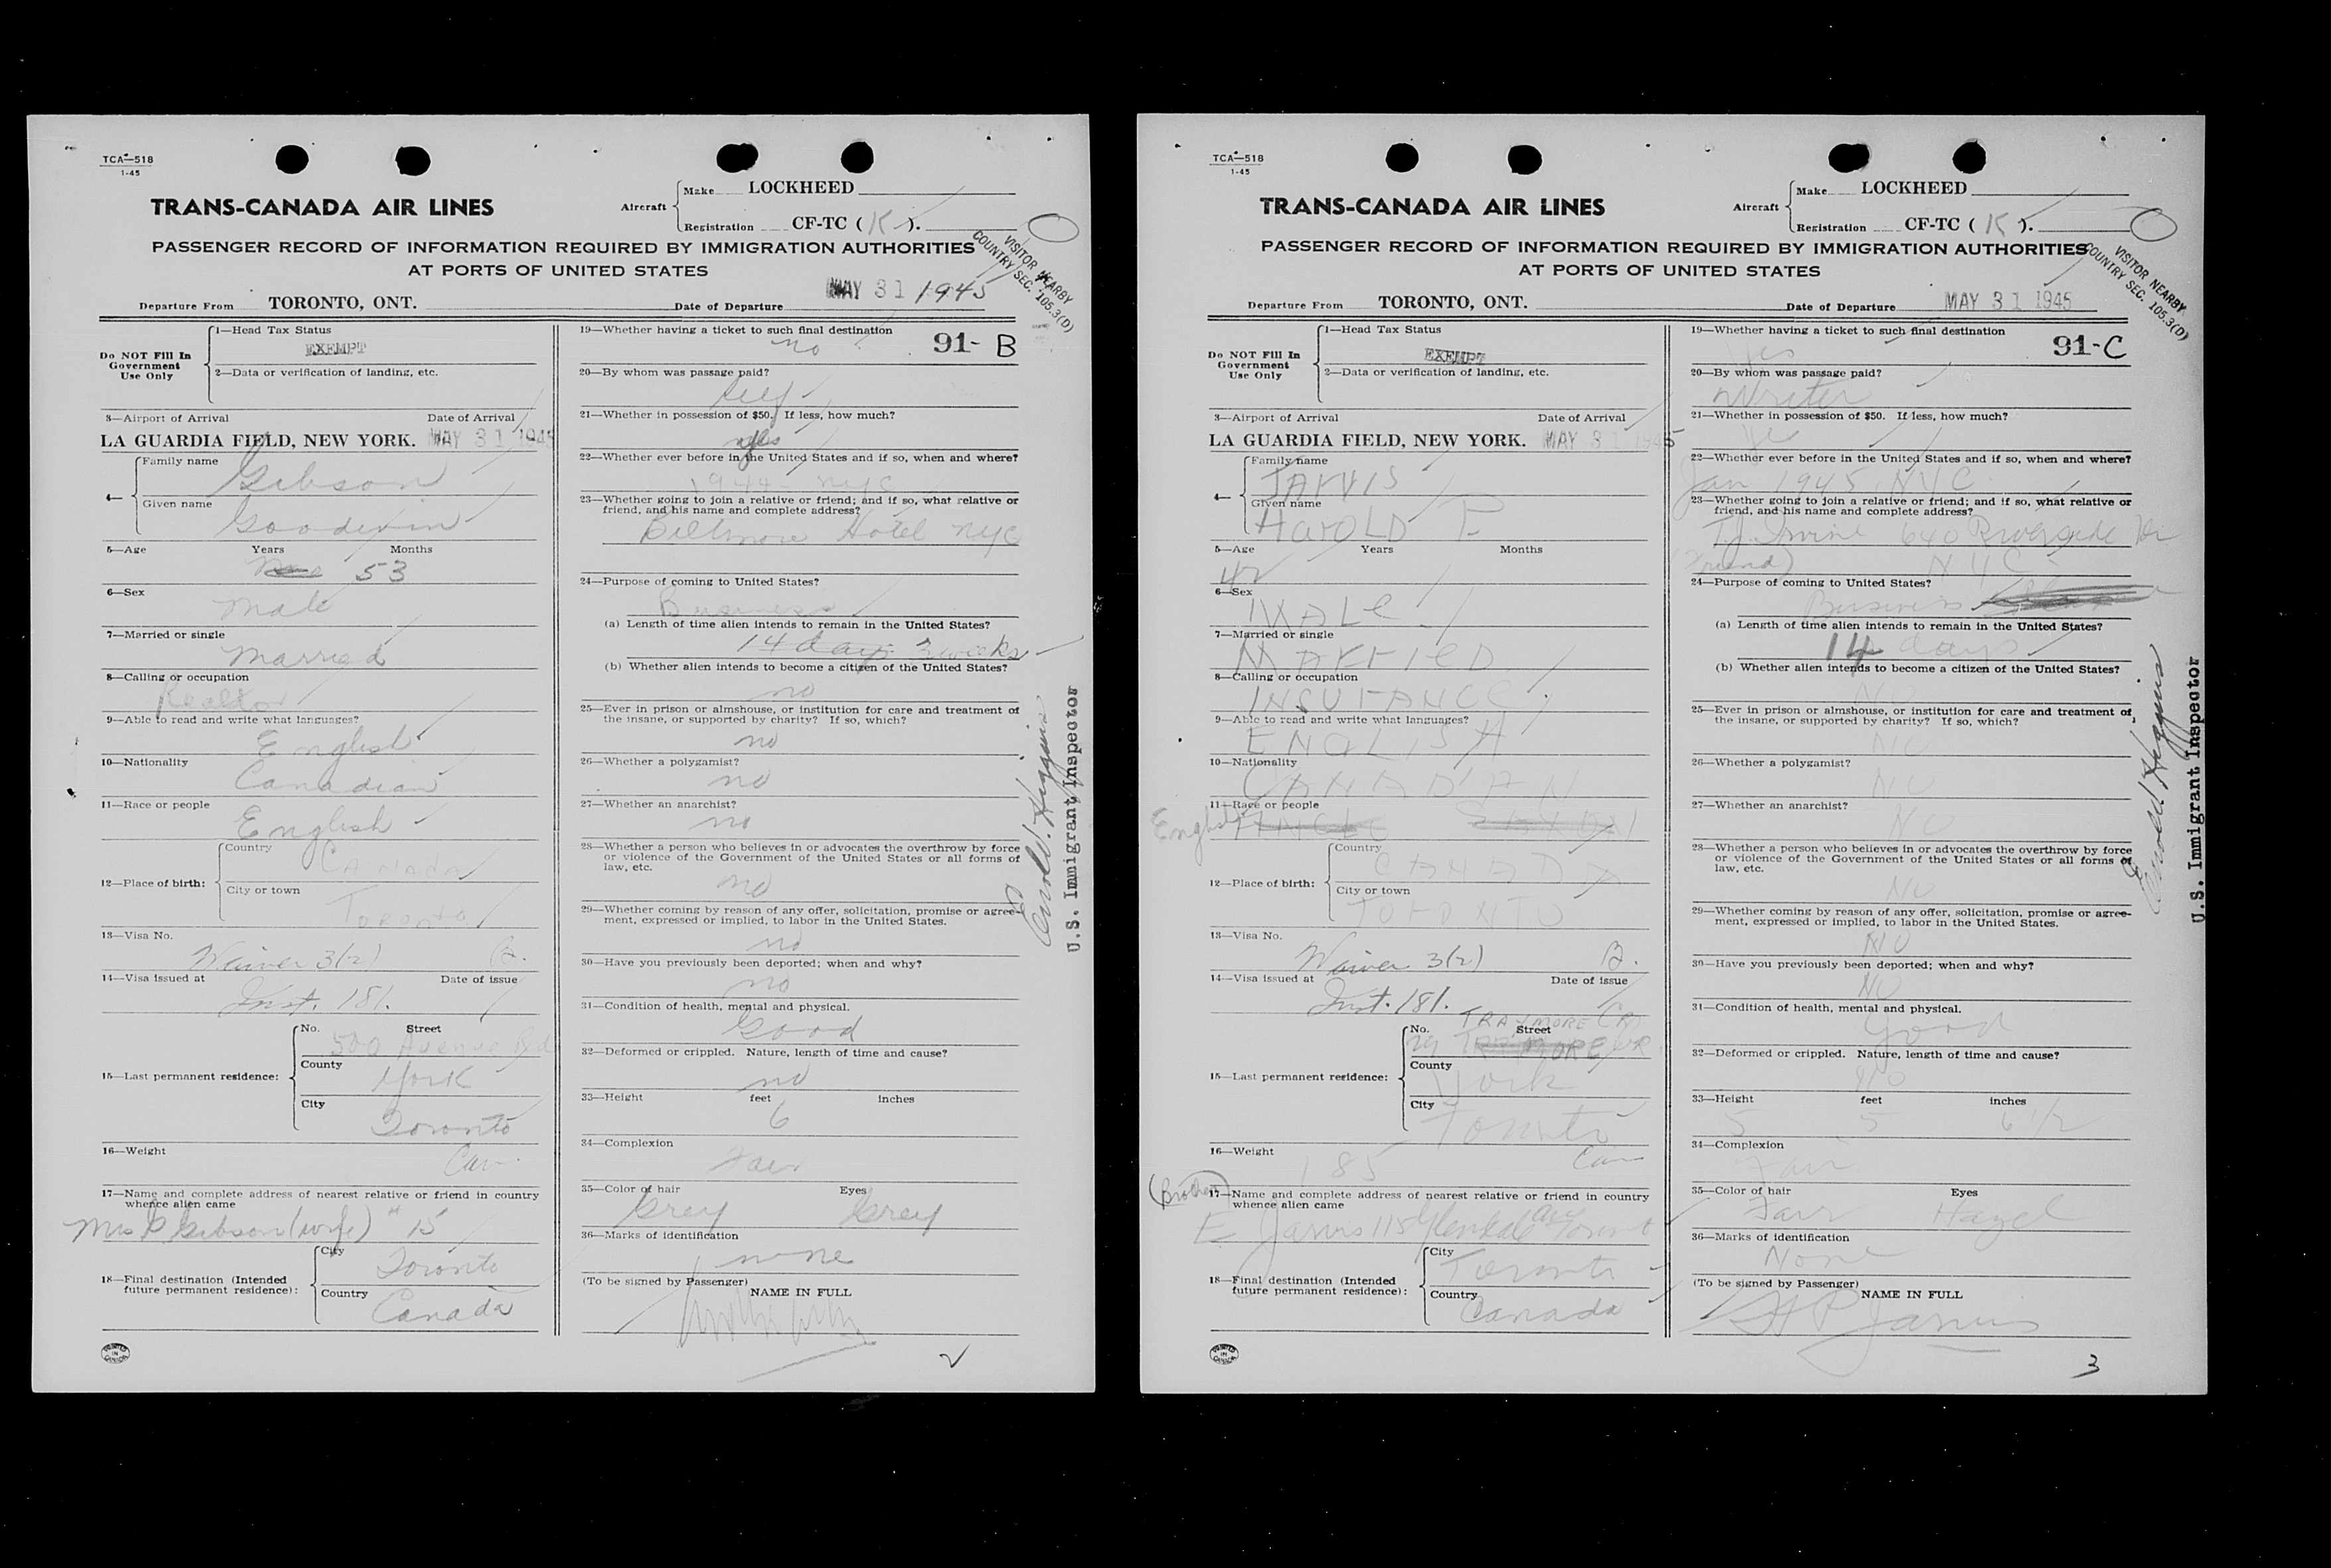 TCA—518
1-45
TRANS-CANADA AIR LINES
Aircraft
Make LOCKHEED
Registration CF-TC ( K ).
PASSENGER RECORD OF INFORMATION REQUIRED BY IMMIGRATION AUTHORITIES
AT PORTS OF UNITED STATES
VISITOR NEARBY
COUNTRY SEC. 105.3(D)
Departure From TORONTO, ONT. Date of Departure MAY 31 1945
Do NOT Fill In
Government
Use Only
1—Head Tax Status
EXEMPT
2—Data or verification of landing, etc.
3—Airport of Arrival Date of Arrival
LA GUARDIA FIELD, NEW YORK. MAY 31 1945
4—
Family name
Gibson
Given name
Goodwin
5—Age Years Months
53
6—Sex
Male
7—Married or single
Married
8—Calling or occupation
Realtor
9—Able to read and write what languages?
English
10—Nationality
Canadian
11—Race or people
English
12—Place of birth:
Country
Canada
City or town
Toronto
13—Visa No.
Waiver 3(2) B.
14—Visa issued at Date of issue
Inst. 181.
15—Last permanent residence:
No. Street
500 Avenue Rd
County
York
City
Toronto
16—Weight
Can.
17—Name and complete address of nearest relative or friend in country
whence alien came
Mrs Gibson (wife) " 15
18—Final destination (Intended
future permanent residence):
City
Toronto
Country
Canada
PRINTED IN CANADA
19—Whether having a ticket to such final destination
no
91- B
20—By whom was passage paid?
Self
21—Whether in possession of $50. If less, how much?
yes
22—Whether ever before in the United States and if so, when and where?
1944 - NYC
23—Whether going to join a relative or friend; and if so, what relative or
friend, and his name and complete address?
Biltmore Hotel NYC
24—Purpose of coming to United States?
Business
(a) Length of time alien intends to remain in the United States?
14 days 3 weeks
(b) Whether alien intends to become a citizen of the United States?
no
25—Ever in prison or almshouse, or institution for care and treatment of
the insane, or supported by charity? If so, which?
no
26—Whether a polygamist?
no
27—Whether an anarchist?
no
28—Whether a person who believes in or advocates the overthrow by force
or violence of the Government of the United States or all forms of
law, etc.
no
29—Whether coming by reason of any offer, solicitation, promise or agree-
ment, expressed or implied, to labor in the United States.
no
30—Have you previously been deported; when and why?
no
31—Condition of health, mental and physical.
Good
32—Deformed or crippled. Nature, length of time and cause?
no
33—Height feet inches
6
34—Complexion
Fair
35—Color of hair Eyes
Grey Grey
36—Marks of identification
none
(To be signed by Passenger)
NAME IN FULL
2
Arnold Higgins
U.S. Immigrant Inspector
TCA—518
1-45
TRANS-CANADA AIR LINES
Aircraft
Make LOCKHEED
Registration CF-TC ( K ).
PASSENGER RECORD OF INFORMATION REQUIRED BY IMMIGRATION AUTHORITIES
AT PORTS OF UNITED STATES
VISITOR NEARBY
COUNTRY SEC. 105.3(D)
Departure From TORONTO, ONT. Date of Departure MAY 31 1945
Do NOT Fill In
Government
Use Only
1—Head Tax Status
EXEMPT
2—Data or verification of landing, etc.
3—Airport of Arrival Date of Arrival
LA GUARDIA FIELD, NEW YORK. MAY 31 1945
4—
Family name
JARVIS
Given name
HAROLD P.
5—Age Years Months
42
6—Sex
MALE
7—Married or single
MARRIED
8—Calling or occupation
INSURANCE
9—Able to read and write what languages?
ENGLISH
10—Nationality
CANADIAN
11—Race or people
English ANGLO SAXON
12—Place of birth:
Country
CANADA
City or town
TORONTO
13—Visa No.
Waiver 3(2) B.
14—Visa issued at Date of issue
Inst. 181.
15—Last permanent residence:
TRAYMORE CR
No. Street
19
County
York
City
Toronto
16—Weight
185 Can
(Brother)
17—Name and complete address of nearest relative or friend in country
whence alien came
E Jarvis 115 Ave Toronto
18—Final destination (Intended
future permanent residence):
City
Toronto
Country
Canada
PRINTED IN CANADA
19—Whether having a ticket to such final destination
Yes
91-C
20—By whom was passage paid?
Writer
21—Whether in possession of $50. If less, how much?
Yes
22—Whether ever before in the United States and if so, when and where?
Jan 1945 NYC
23—Whether going to join a relative or friend; and if so, what relative or
friend, and his name and complete address?
T.J. Irvine 640 Riverside Dr
(Friend) NYC
24—Purpose of coming to United States?
Business
(a) Length of time alien intends to remain in the United States?
14 days
(b) Whether alien intends to become a citizen of the United States?
No
25—Ever in prison or almshouse, or institution for care and treatment of
the insane, or supported by charity? If so, which?
NO
26—Whether a polygamist?
NO
27—Whether an anarchist?
NO
28—Whether a person who believes in or advocates the overthrow by force
or violence of the Government of the United States or all forms of
law, etc.
NO
29—Whether coming by reason of any offer, solicitation, promise or agree-
ment, expressed or implied, to labor in the United States.
NO
30—Have you previously been deported; when and why?
NO
31—Condition of health, mental and physical.
Good
32—Deformed or crippled. Nature, length of time and cause?
No
33—Height feet inches
5 5 6 1/2
34—Complexion
Fair
35—Color of hair Eyes
Fair Hazel
36—Marks of identification
None
(To be signed by Passenger)
NAME IN FULL
H P Jarvis
3
Arnold Higgins
U.S. Immigrant Inspector